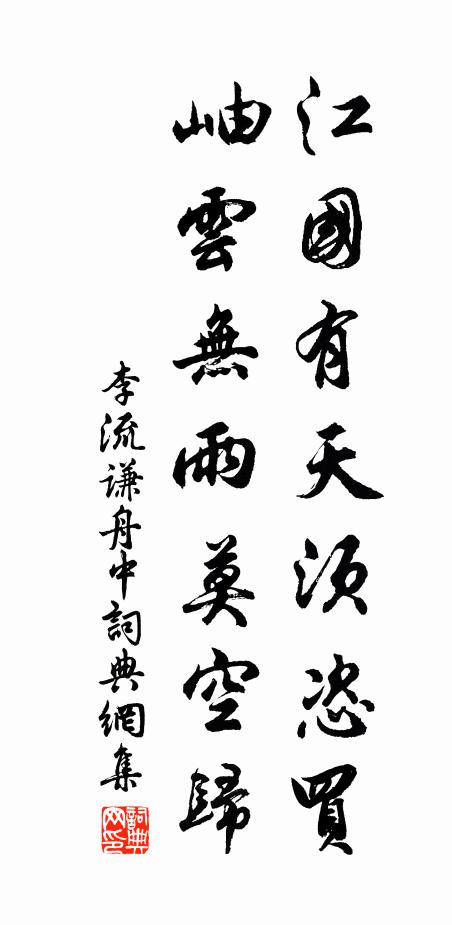 江國有天須恣買
岫雲無雨莫空歸
李流謙舟中詞典網集
詞典網印